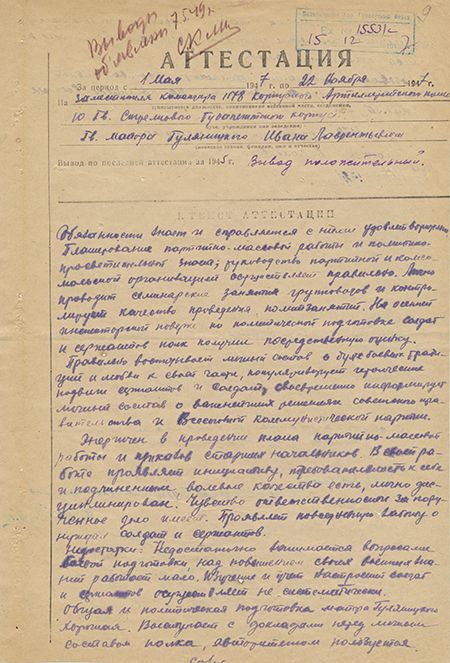 Выводы
объявлены 7.5.49г.
15531с
15 12 7
АТТЕСТАЦИЯ
За период с 1 Мая 1947 г. по 22 Ноября 1947 г.
На заместителя командира 1178 корпусного Артиллерийского полка
10 Гв. Стрелкового Будапештского корпуса
Гв. майора Гуляницкого Ивана Лаврентьевича
(воинское звание, фамилия, имя и отчество)
Вывод по последней аттестации за 1945 г. Вывод положительный.
I. ТЕКСТ АТТЕСТАЦИИ
Обязанности знает и справляется с ними удовлетворительно
Планирование партийно-массовой работы и политико-
просветительной знает; руководство партийной и комсо-
мольской организацией осуществляет правильно. Лично
проводит семинарские занятия групповодов и контро-
лирует качество проведения политзанятий. На осенней
инспекторской поверке по политической подготовке солдат
и сержантов полк получил посредственную оценку.
Правильно воспитывает личный состав в духе боевых тради-
ций и любви к своей части, популяризирует героические
подвиги сержантов и солдат, своевременно информирует
личный состав о важнейших решениях советского пра-
вительства и Всесоюзной Коммунистической партии.
Энергичен в проведении плана партийно-массовой
работы и приказов старших начальников. В своей ра-
боте проявляет инициативу, требовательность к себе
и подчиненным, волевые качества есть, лично дис-
циплинирован. Чувство ответственности за пору-
ченное дело имеет. Проявляет повседневную заботу о
нуждах солдат и сержантов.
Недостатки: Недостаточно занимается вопросами
боевой подготовки, над повышением своих военных зна-
ний работает мало. Изучение и учет настроений солдат
и сержантов осуществляет не систематически.
Общая и политическая подготовка майора Гуляницкого
хорошая. Выступает с докладами перед личным
составом полка, авторитетом пользуется.